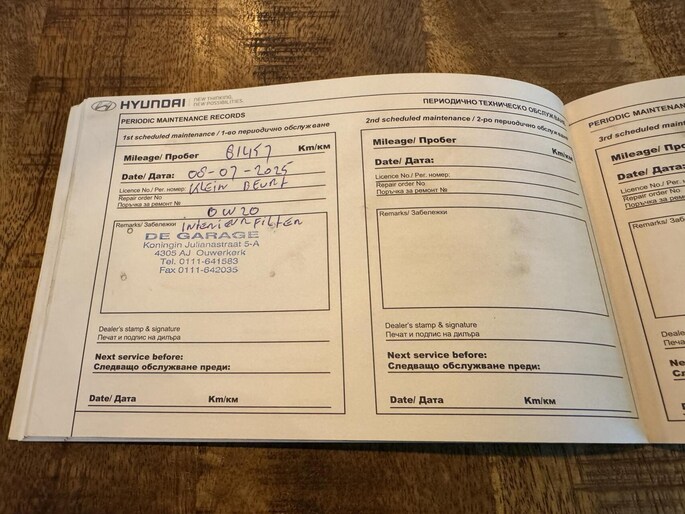 HYUNDAI NEW THINKING.
NEW POSSIBILITIES.
PERIODIC MAINTENANCE RECORDS
1st scheduled maintenance / 1-во периодично обслужване
Mileage/ Пробег 81457 Km/км
Date/ Дата: 08-07-2025
Licence No./ Рег. номер: KLEIN BEURT
Repair order No
Поръчка за ремонт №
OW20
Remarks/ Забележки INTERIEURFILTER
DE GARAGE
Koningin Julianastraat 5-A
4305 AJ Ouwerkerk
Tel. 0111-641583
Fax 0111-642035
Dealer's stamp & signature
Печат и подпис на дилъра
Next service before:
Следващо обслужване преди:
Date/ Дата Km/км
ПЕРИОДИЧНО ТЕХНИЧЕСКО ОБСЛУЖВАНЕ
2nd scheduled maintenance / 2-ро периодично обслужване
Mileage/ Пробег Km/км
Date/ Дата:
Licence No./ Рег. номер:
Repair order No
Поръчка за ремонт №
Remarks/ Забележки
Dealer's stamp & signature
Печат и подпис на дилъра
Next service before:
Следващо обслужване преди:
Date/ Дата Km/км
PERIODIC MAINTENAN
3rd scheduled mainten
Mileage/ Про
Date/ Дата:
Licence No./ Рег. но
Repair order No
Поръчка за ремонт
Remarks/ Забележ
Dealer's st
Печат и п
Next se
Date/